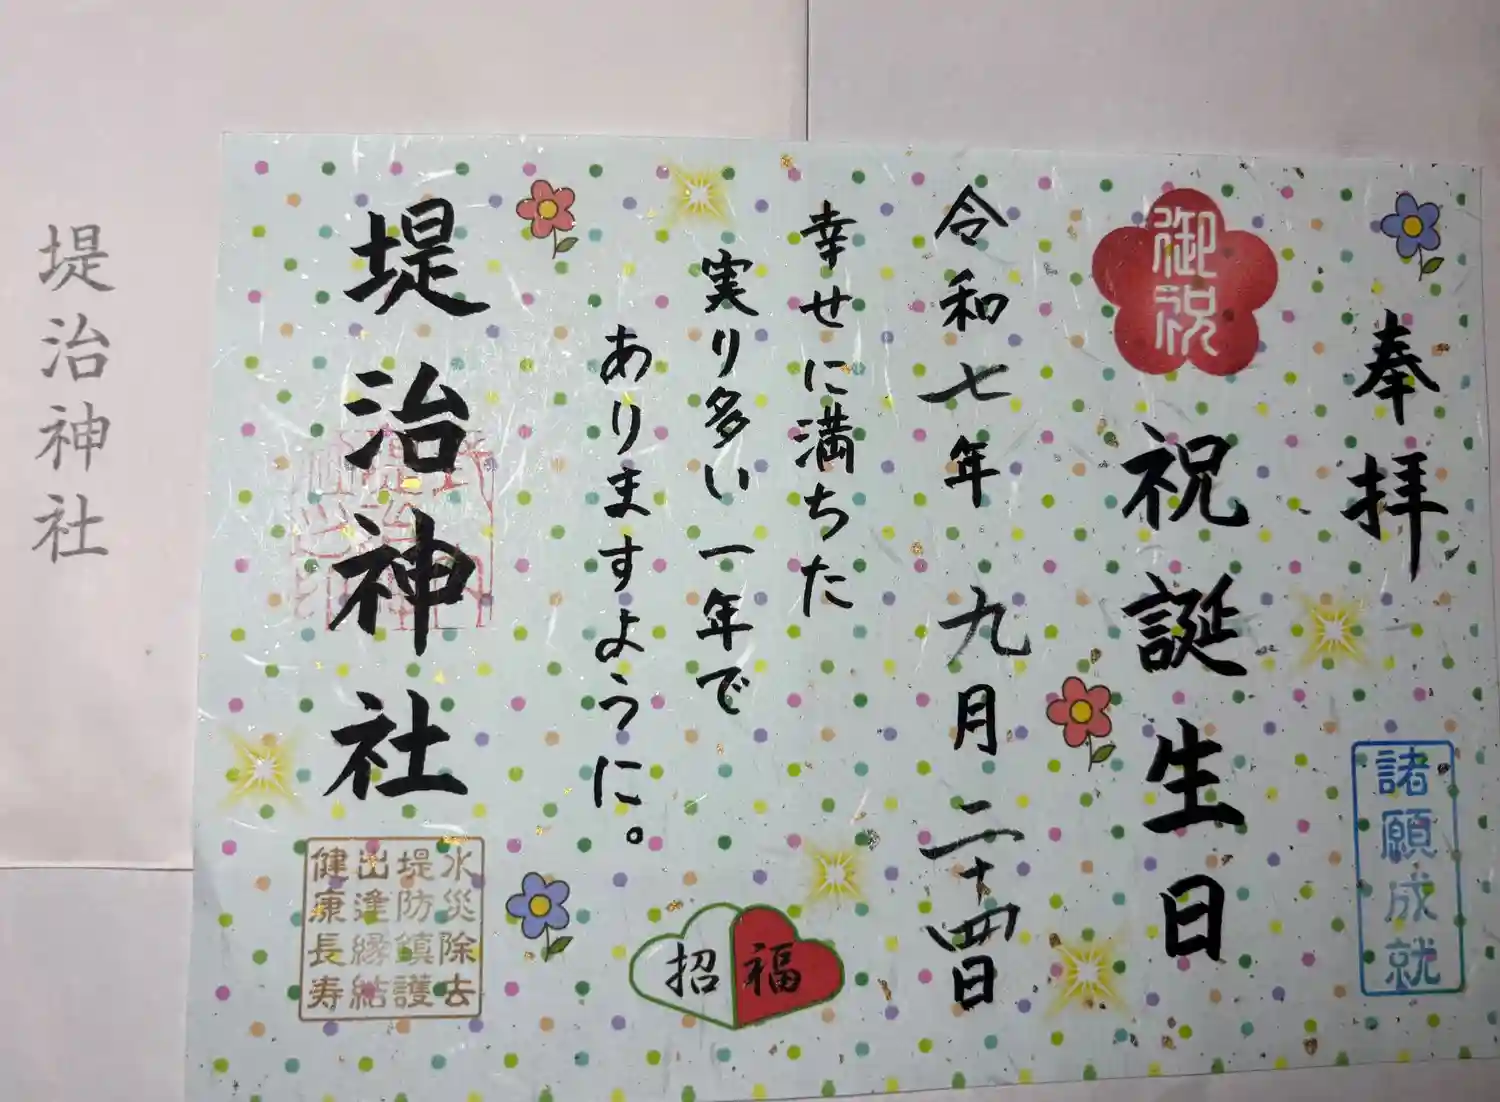 奉拝
諸願成就
御祝
祝誕生日
令和七年 九月 二十四日
幸せに満ちた
実り多い一年で
ありますように。
招福
堤治神社
水災除去
堤防鎮護
出逢縁結
健康長寿
堤治神社